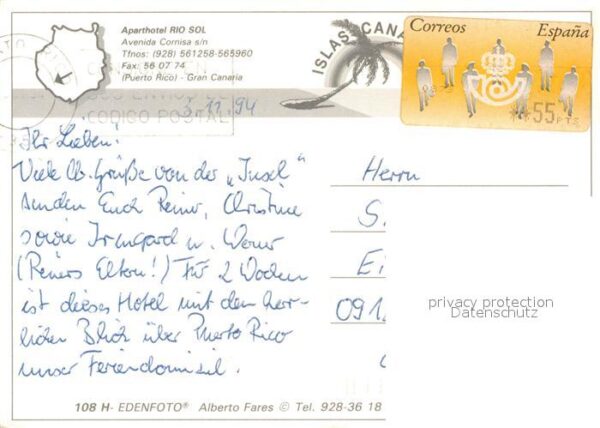 Aparthotel RIO SOL
Avenida Cornisa s/n
Tfnos: (928) 561258-565960
Fax: 56 07 74
(Puerto Rico) - Gran Canaria
ISLAS CANA
Correos España
**55 PTS
CODIGO POSTAL
3.11.94
Ihr Lieben!
Viele lb. Grüße von der „Insel"
senden Euch Reiner, Christine
sowie Irmgard u. Werner
(Reiners Eltern!) Für 2 Wochen
ist dieses Hotel mit dem herr-
lichen Blick über Puerto Rico
unser Feriendomizil.
Herrn
S.
Ei
091
privacy protection
Datenschutz
108 H- EDENFOTO® Alberto Fares © Tel. 928-36 18